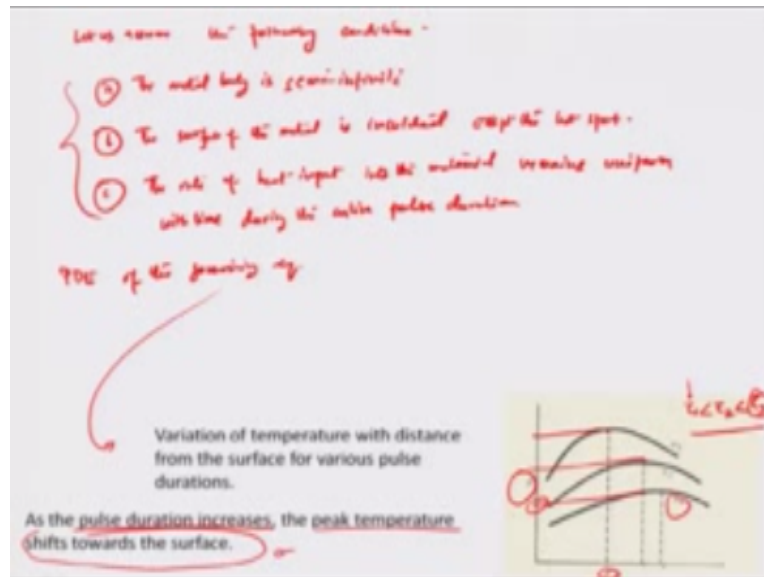 Let us assume the following conditions -
(a) The metal body is semi-infinite
(b) The surface of the metal is insulated except the hot spot.
(c) The rate of heat-input into the material remains uniform
with time during the entire pulse duration
PDE of the governing eq
Variation of temperature with distance
from the surface for various pulse
durations.
As the pulse duration increases, the peak temperature
shifts towards the surface.